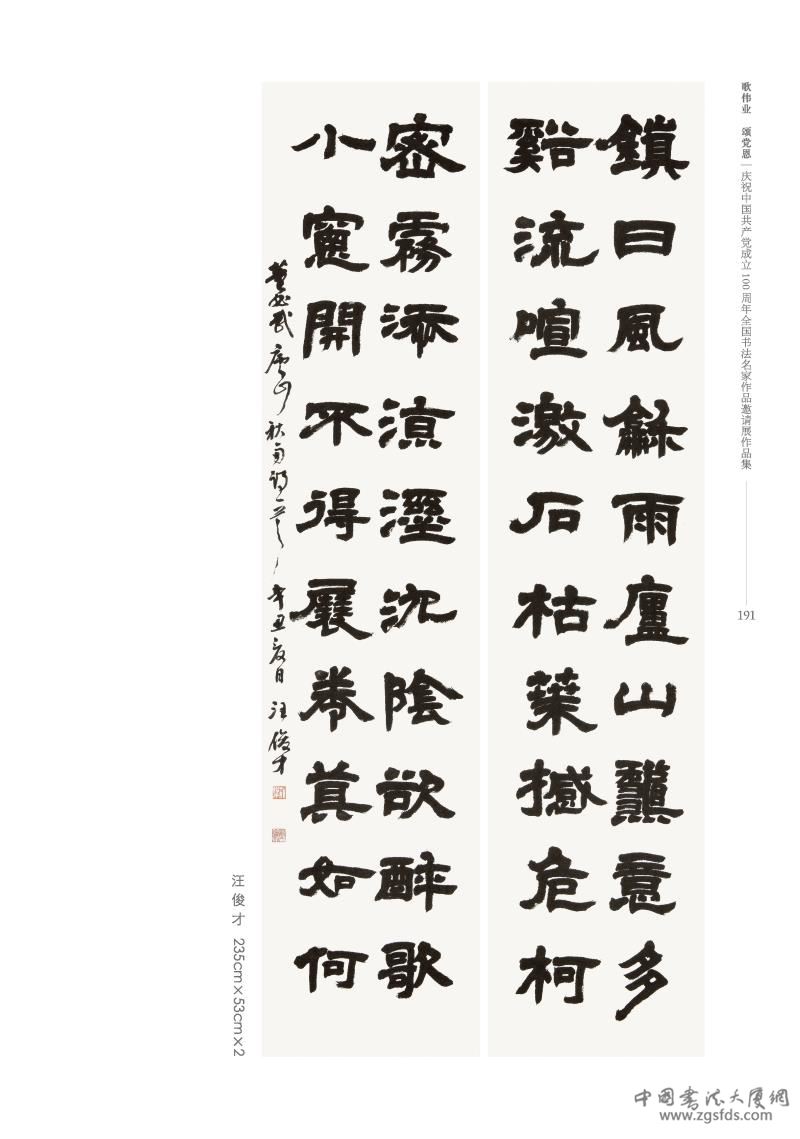 歌伟业 颂党恩 | 庆祝中国共产党成立100周年全国书法名家作品邀请展作品集
191
鎮日風龢雨廬山龝意多
谿流喧激石枯葉撼危柯
密霧添滇溼沈陰欲醉歌
小窻開不得展卷其如何
董必武廬山秋雨詩一首 辛丑夏日 汪俊才
汪俊才 235cm×53cm×2
中国书法大厦網
www.zgsfds.com